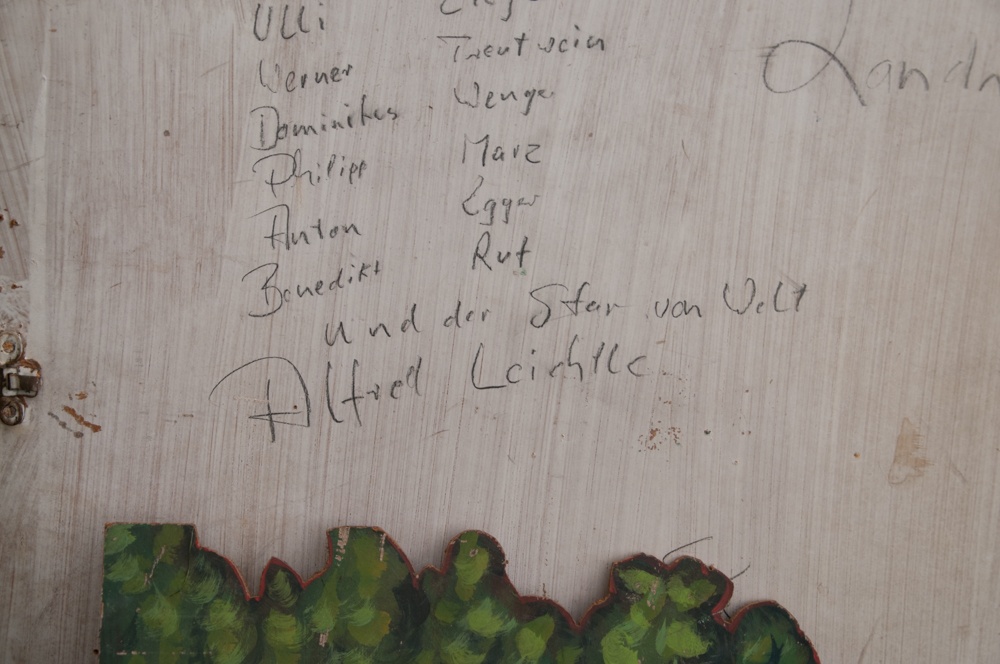 Ulli
Werner Trentwein
Dominikus Wenge
Philipp Marz
Anton Egger
Benedikt Ruf
und der Star von Welt
Alfred Leichtle